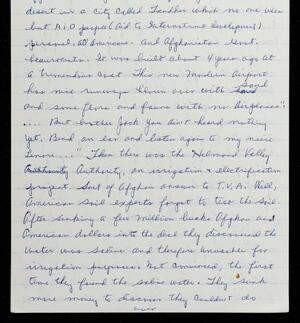 desert in a city called Kandhar which no one uses
but A.I.D people (Aid to International Development)
personnel. all Americans. And Afghanistan Govt.
beaurocrats. It was built about 4 year ago at
a tremendous cost. This new Modern Airport
has nice runways blown over with sand
and some flora and fauna with no Airplanes."
.... But brother Jack you ain't heard nothing
yet. Bend an ear and listen again to my niece
Lenore...." "Then there was the Helmand Valley
Authority, an irrigation & electrification
project. Sort of Afghan answer to T.V.A. Well,
American soil experts forgot to test the soil.
After sinking a few million bucks Afghan and
American dollars into the deal they discovered the
water was saline and therefore unusable for
irrigation purposes. Not convinced, the first
time they found the saline water. They sunk
more money to discover they couldn't do
over